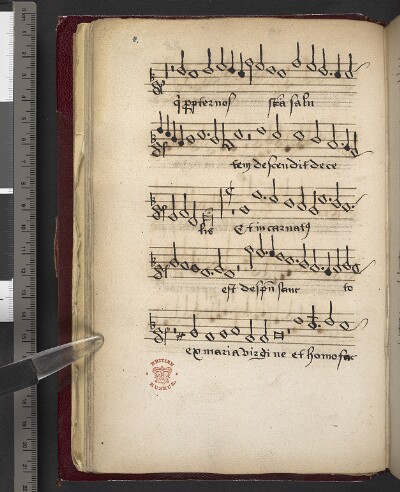 q̃ ꝓpter nos sta salu
tem descendit de ce
lis Et in carnatꝰ
est de spũ sanc to
ex maria virgine et homo fac
BRITISH MUSEUM